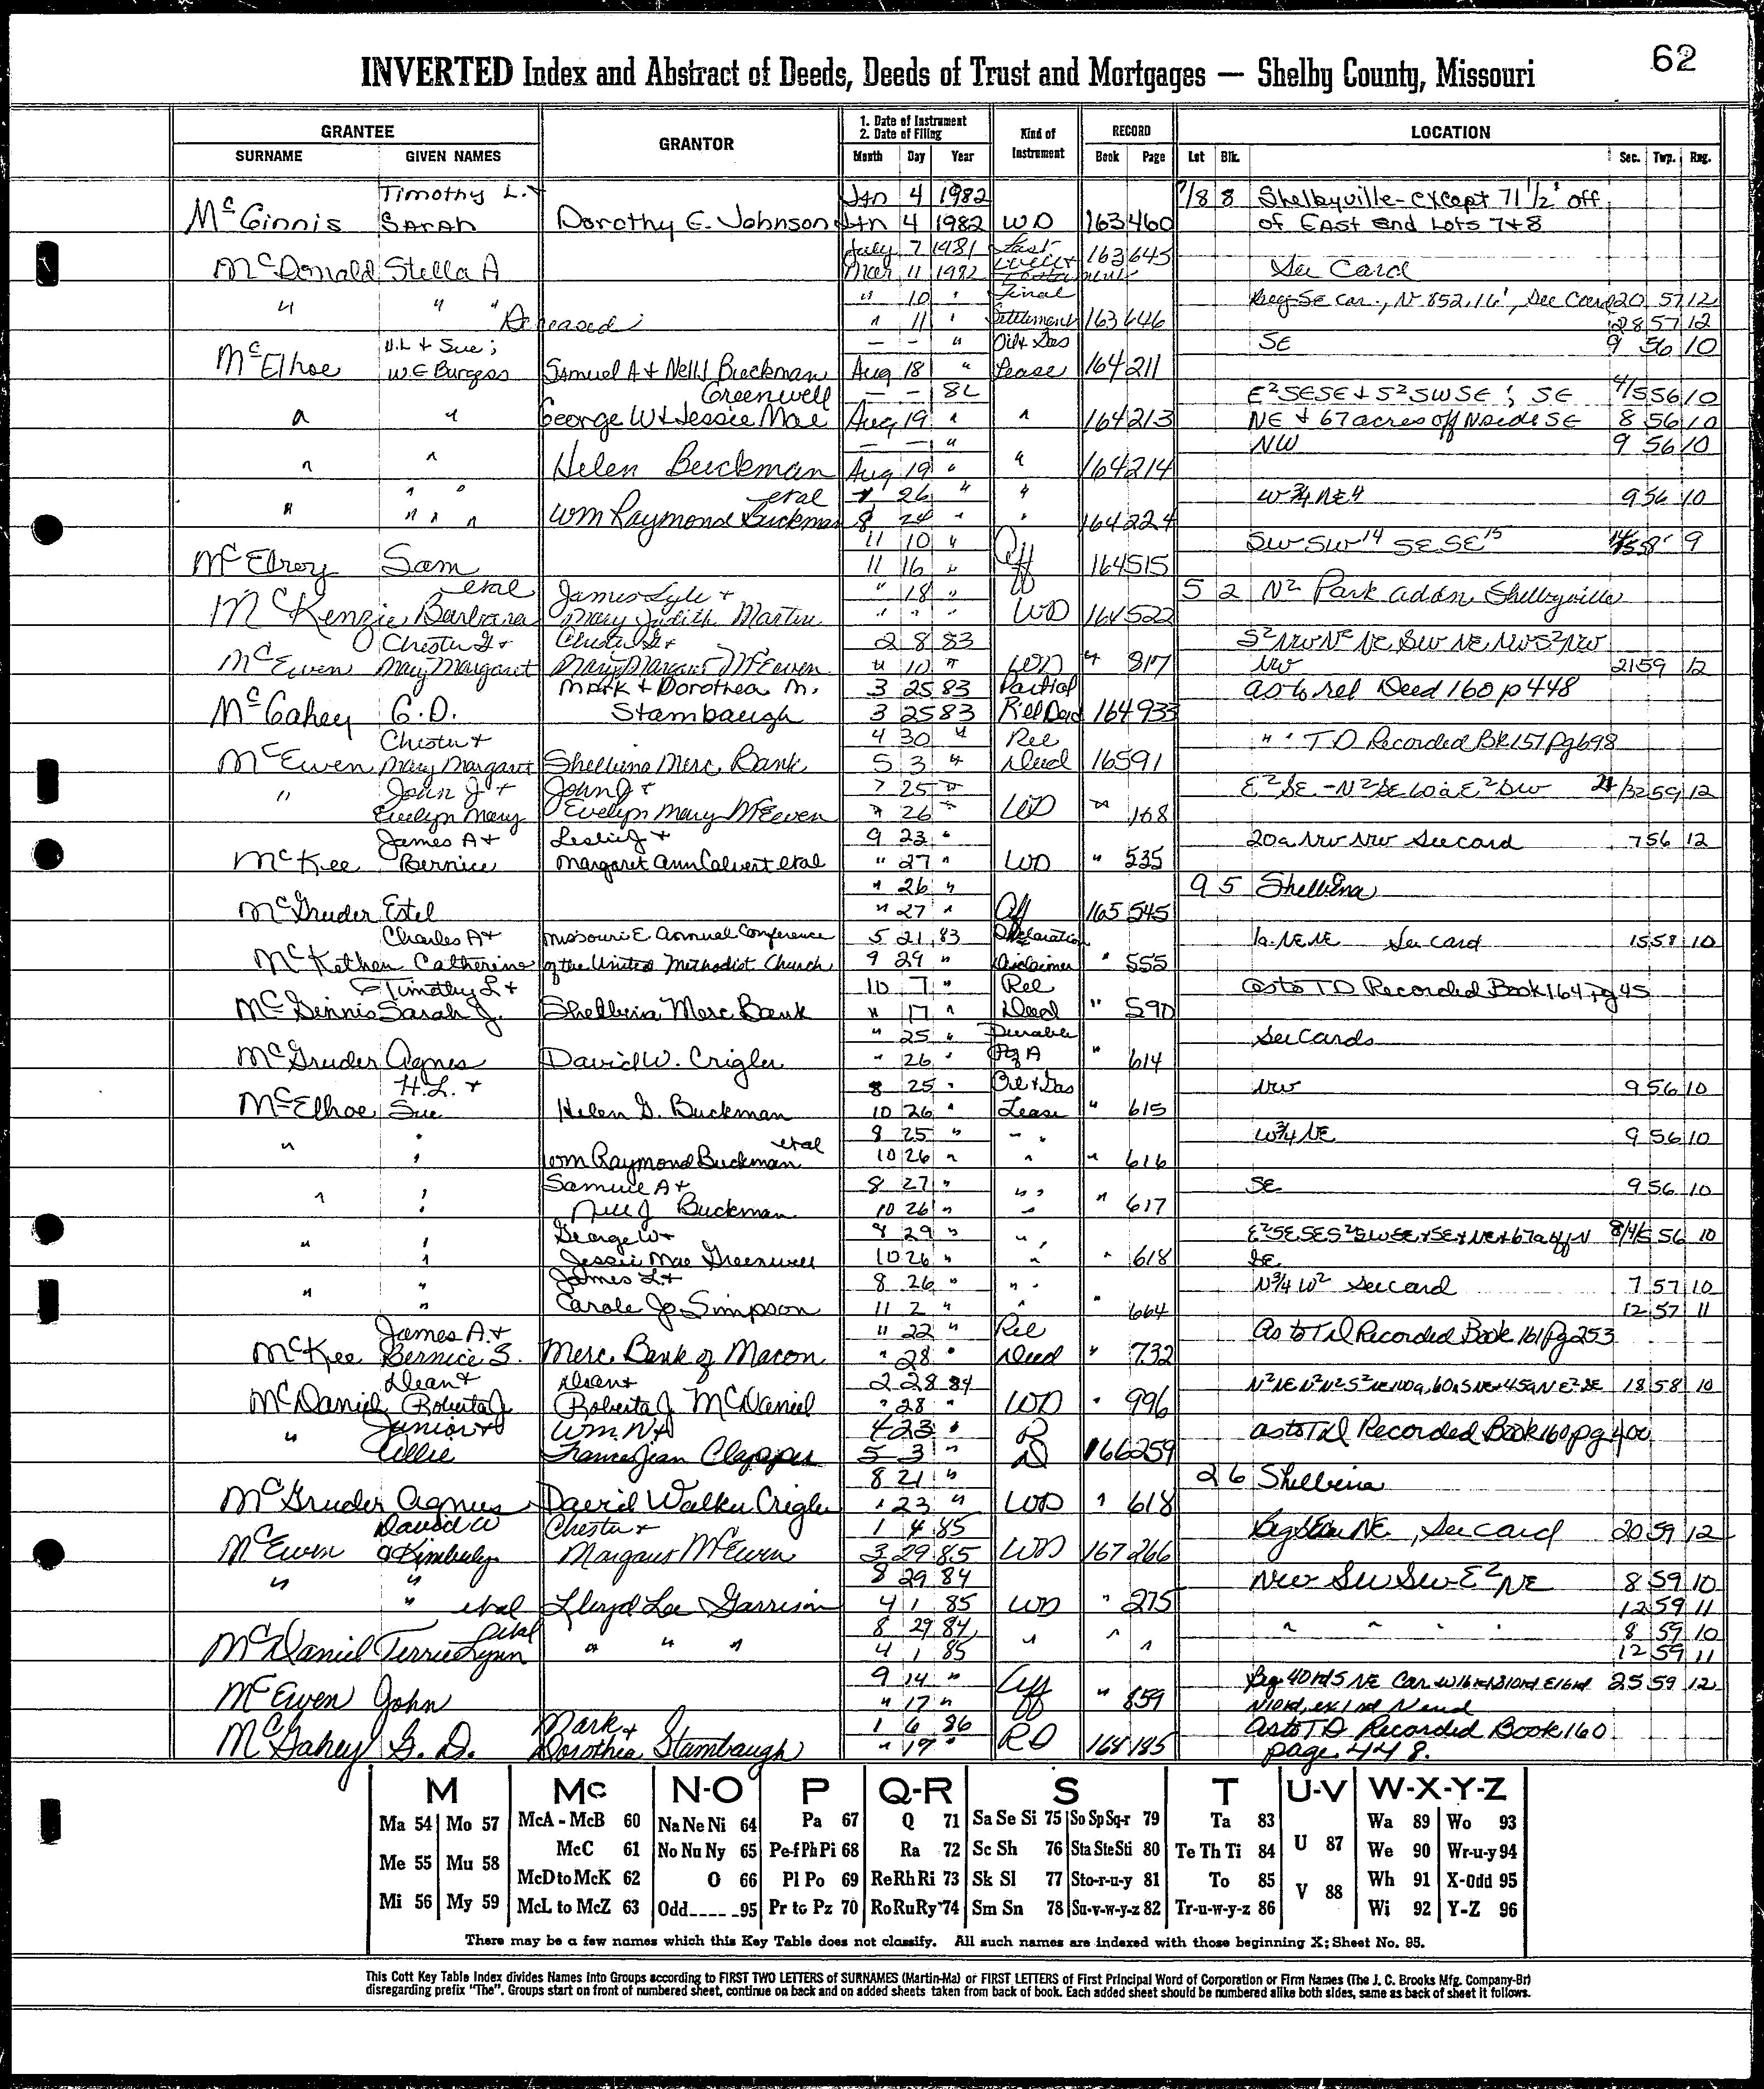 62
INVERTED Index and Abstract of Deeds, Deeds of Trust and Mortgages — Shelby County, Missouri
GRANTEE GRANTOR 1. Date of Instrument 2. Date of Filing Kind of Instrument RECORD LOCATION
SURNAME GIVEN NAMES Month Day Year Book Page Lot Blk. Sec. Twp. Rng.
Timothy L. + Jan 4 1982 7/8 8 Shelbyville - except 71 1/2' off
McGinnis Sarah Dorothy E. Johnson Jan 4 1982 WD 163 460 of East end Lots 7+8
July 7 1981 Last
McDonald Stella A Mar 11 1982 Will + Testament 163 645 See Card
" " " " 10 " Final Beg Se Cor., N 852.16', See Card 20 57 12
Deceased " 11 " Settlement 163 646 28 57 12
H.L + Sue; — — " Oil + Gas SE 9 56 10
McElhoe W.E Burgess Samuel A + Nell J Buckman Aug 18 " Lease 164 211
Greenwell — — 82 E²SESE + S²SWSE ; SE 4/5 56 10
" " George W + Jessie Mae Aug 19 " " 164 213 NE + 67 acres off N side SE 8 56 10
— — " NW 9 56 10
" " Helen Buckman Aug 19 " " 164 214
" " etal 26 " " W 3/4 NE4 9 56 10
" " " " Wm Raymond Buckman 8 24 " " 164 224
11 10 " SW SW 14 SE SE 15 14/15 58 9
McElroy Sam 11 16 " Aff 164 515
etal James Lyle + " 18 " 5 2 N² Park addn Shelbyville
McKenzie Barbara Mary Judith Martin " " " WD 164 522
Chester G + Chester G + 2 8 83 S²NWN² NE, SW NE, NWS²NW
McEwen Mary Margaret Mary Margaret McEwen " 10 " WD " 817 NW 21 59 12
Mark + Dorothea M. 3 25 83 Partial as to rel Deed 160 p 448
McGahey G.D. Stambaugh 3 25 83 Rel Deed 164 933
Chester + 4 30 " Rel " " TD Recorded BK 157 pg 698
McEwen Mary Margaret Shelbina Merc Bank 5 3 " Deed 165 91
" John J + John J + 7 25 " E²SE - N²SE 60a E²SW 21/32 59 12
Evelyn Mary Evelyn Mary McEwen 7 26 " WD " 168
James A + Leslie J + 9 23 " 20a NW NW See card 7 56 12
McKee Bernice Margaret Ann Calvert etal " 27 " WD " 535
" 26 " 9 5 Shelbina
McGruder Estel " 27 " Aff 165 545
Charles A + Missouri E Annual Conference 5 21 83 Declaration 1a. NE NE See card 15 58 10
McKethen Catherine of the United Methodist Church 9 29 " Disclaimer " 555
Timothy L + 10 7 " Rel as to TD Recorded Book 164 pg 45
McGinnis Sarah J. Shelbina Merc Bank " 17 " Deed " 590
" 25 " Durable See Cards
McGruder Agnes David W. Crigler " 26 " P of A " 614
H.L. + 8 25 " Oil + Gas NW 9 56 10
McElhoe Sue Helen G. Buckman 10 26 " Lease " 615
" " etal 8 25 " " " W 3/4 NE 9 56 10
" Wm Raymond Buckman 10 26 " " " 616
" " Samuel A + 8 27 " " " SE 9 56 10
" Nell J Buckman 10 26 " " " 617
" " George W + 8 29 " " " E²SE SE S²SW SE + SE + NE + 67a off N 8/4/5 56 10
" Jessie Mae Greenwell 10 26 " " " 618 SE
" " James L + 8 26 " " " N 3/4 W² See card 7 57 10
" Carole Jo Simpson 11 2 " " " 664 12 57 11
James A. + " 22 " Rel As to T.D Recorded Book 161 Pg 253
McKee Bernice S. Merc. Bank of Macon " 28 " Deed " 732
Dean + Dean + 2 28 84 18 58 10
McDaniel Roberta J Roberta J McDaniel " 28 " WD " 996
" Junior + Wm N + 4 23 " R as to T.D Recorded Book 160 pg 400
Allie Frances Jean Clapper 5 3 " D 166 259
8 21 " 2 6 Shelbina
McGruder Agnes David Walker Crigler " 23 " WD " 618
David W Chester + 1 4 85 Beg SE cor NE, See card 20 59 12
McEwen + Kimberly Margaret McEwen 3 29 85 WD 167 266
" " 8 29 84 NW SW SW E²NE 8 59 10
" etal Lloyd Lee Garrison 4 1 85 WD " 275 12 59 11
etal 8 29 84 " " " " 8 59 10
McDaniel Terrie Lynn " " " 4 1 85 " " " 12 59 11
9 14 " Beg 40 rd S NE Cor W 16 rd S 10 rd E 16 rd 25 59 12
McEwen John " 17 " Aff " 859 N 10 rd, ex 1 rd N end
Mark + 1 6 86 as to TD Recorded Book 160
McGahey G. D. Dorothea Stambaugh " 17 " RD 168 185 page 448.
M Mc N-O P Q-R S T U-V W-X-Y-Z
Ma 54 Mo 57 McA - McB 60 Na Ne Ni 64 Pa 67 Q 71 Sa Se Si 75 So Sp Sq-r 79 Ta 83 Wa 89 Wo 93
McC 61 No Nu Ny 65 Pe-f Ph Pi 68 Ra 72 Sc Sh 76 Sta Ste Sti 80 Te Th Ti 84 U 87 We 90 Wr-u-y 94
Me 55 Mu 58 McD to McK 62 O 66 Pl Po 69 Re Rh Ri 73 Sk Sl 77 Sto-r-u-y 81 To 85 V 88 Wh 91 X-Odd 95
Mi 56 My 59 McL to McZ 63 Odd_____95 Pr to Pz 70 Ro Ru Ry 74 Sm Sn 78 Su-v-w-y-z 82 Tr-u-w-y-z 86 Wi 92 Y-Z 96
There may be a few names which this Key Table does not classify. All such names are indexed with those beginning X; Sheet No. 95.
This Cott Key Table Index divides Names Into Groups according to FIRST TWO LETTERS of SURNAMES (Martin-Ma) or FIRST LETTERS of First Principal Word of Corporation or Firm Names (The J. C. Brooks Mfg. Company-Br)
disregarding prefix "The". Groups start on front of numbered sheet, continue on back and on added sheets taken from back of book. Each added sheet should be numbered alike both sides, same as back of sheet it follows.